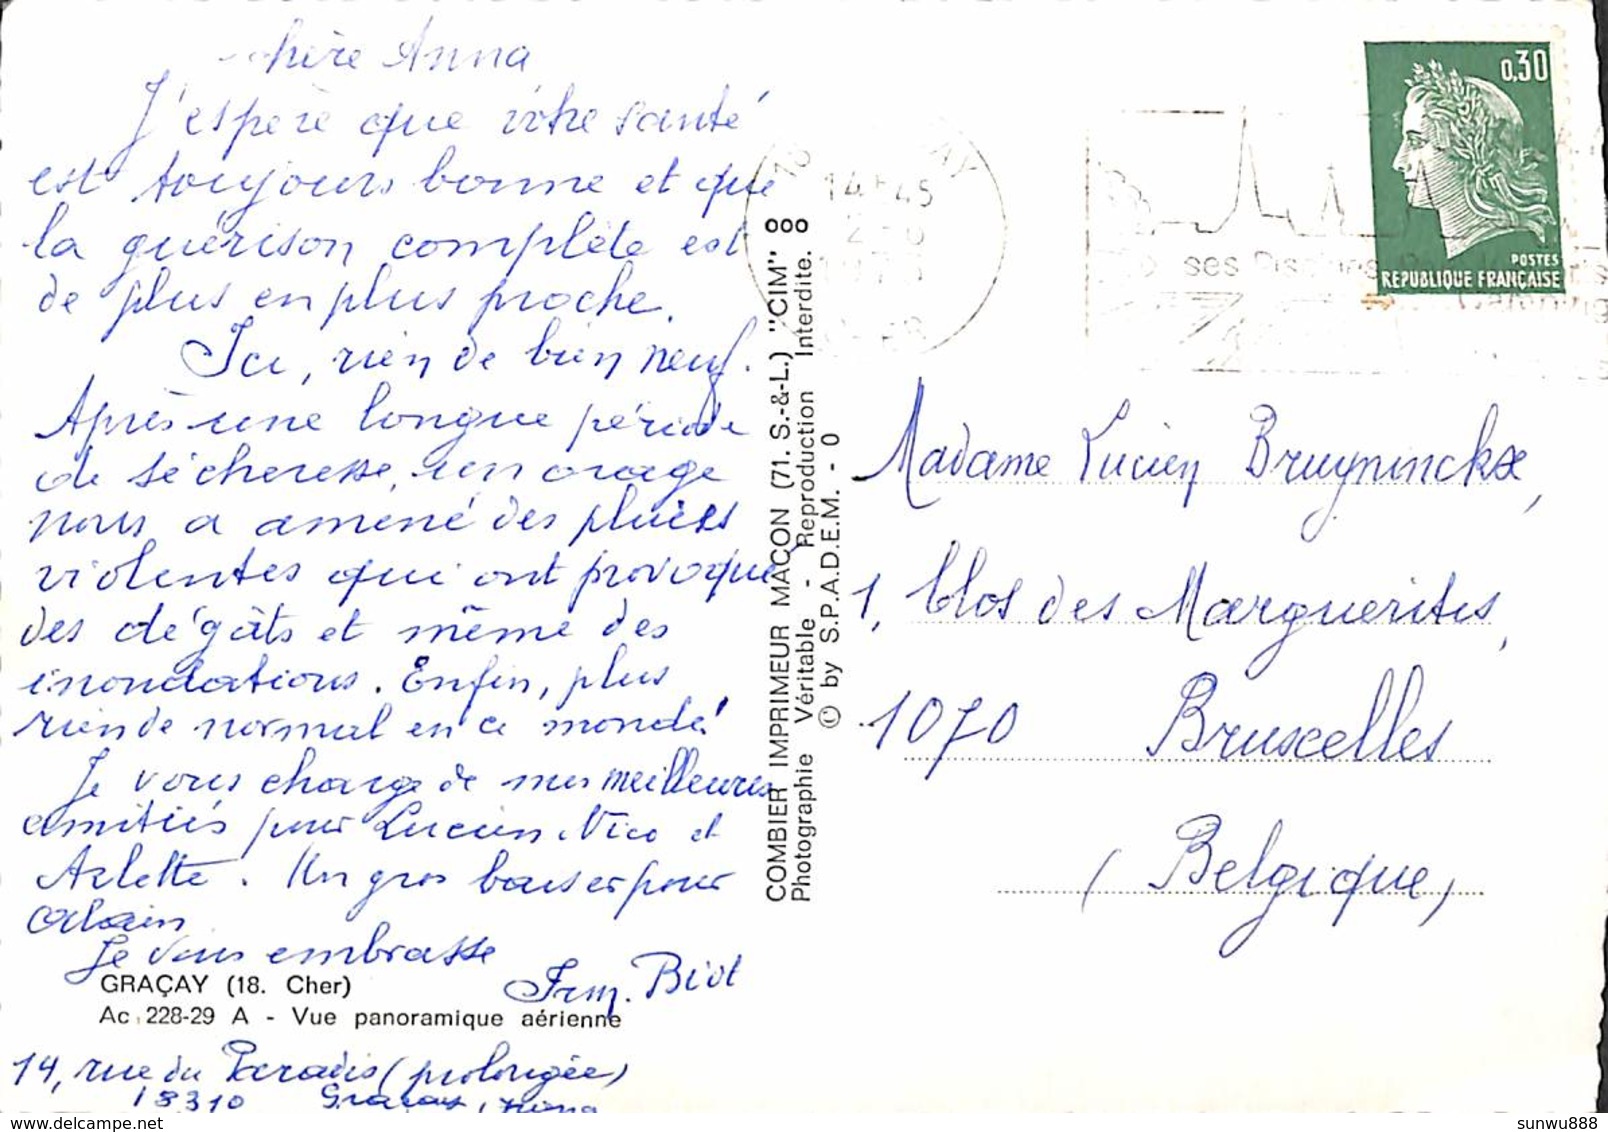 chère Anna
J'espère que votre santé
est toujours bonne et que
la guérison complète est
de plus en plus proche.
Ici, rien de bien neuf.
Après une longue période
de sécheresse, un orage
nous a amené des pluies
violentes qui ont provoqué
des dégâts et même des
inondations. Enfin, plus
rien de normal en ce monde!
Je vous charge de mes meilleures
amitiés pour Lucien, Nico et
Arlette. Un gros baiser pour
Alain
Je vous embrasse
Biot
GRAÇAY (18. Cher)
Ac 228-29 A - Vue panoramique aérienne
14, rue du Paradis (prolongée)
18310 Graçay
COMBIER IMPRIMEUR MACON (71. S.-&-L.) "CIM"
Photographie Véritable - Reproduction Interdite.
© by S.P.A.D.E.M. - 0
14 45
ses
Camping
0,30
POSTES
REPUBLIQUE FRANÇAISE
Madame Lucien Bruyninckx,
1, Clos des Marguerites,
1070 Bruxelles
(Belgique)
delcampe.net
sunwu888